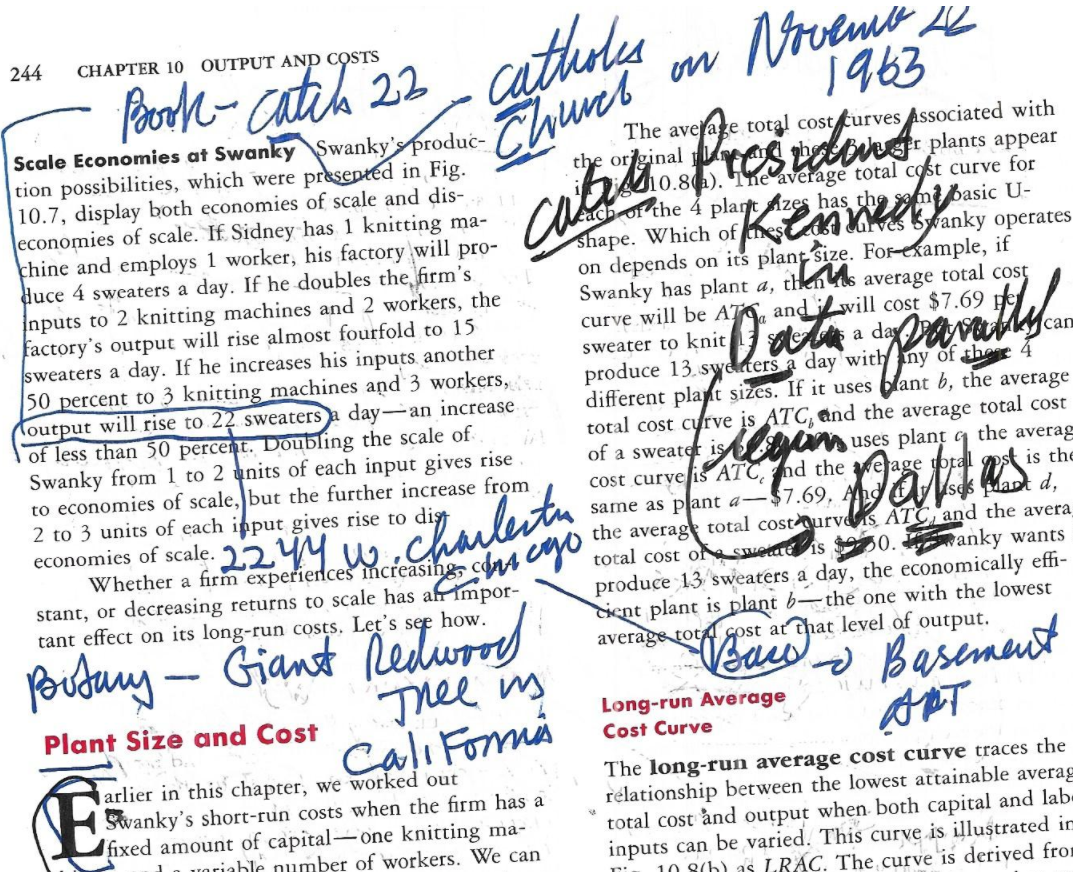 244 CHAPTER 10 OUTPUT AND COSTS
Book - Catch 22
catholes
Church on Novemb 22
1963
Scale Economies at Swanky Swanky's produc-
tion possibilities, which were presented in Fig.
10.7, display both economies of scale and dis-
economies of scale. If Sidney has 1 knitting ma-
chine and employs 1 worker, his factory will pro-
duce 4 sweaters a day. If he doubles the firm's
inputs to 2 knitting machines and 2 workers, the
factory's output will rise almost fourfold to 15
sweaters a day. If he increases his inputs another
50 percent to 3 knitting machines and 3 workers,
output will rise to 22 sweaters a day—an increase
of less than 50 percent. Doubling the scale of
Swanky from 1 to 2 units of each input gives rise
to economies of scale, but the further increase from
2 to 3 units of each input gives rise to dis
economies of scale.
2244 W. Charleston
Chicago
Whether a firm experiences increasing, con-
stant, or decreasing returns to scale has an impor-
tant effect on its long-run costs. Let's see how.
Botany - Giant Redwood
Tree in
California
Plant Size and Cost
Earlier in this chapter, we worked out
Swanky's short-run costs when the firm has a
fixed amount of capital—one knitting ma-
variable number of workers. We can
The average total cost curves associated with
the original plant and these 3 larger plants appear
10.8(a). The average total cost curve for
each of the 4 plant sizes has the same basic U-
shape. Which of these cost curves Swanky operates
on depends on its plant size. For example, if
Swanky has plant a, then its average total cost
curve will be ATCa and it will cost $7.69 per
sweater to knit 13 sweaters a day. But Swanky can
produce 13 sweaters a day with any of these 4
different plant sizes. If it uses plant b, the average
total cost curve is ATCb and the average total cost
of a sweater is uses plant c, the averag
cost curve is ATCc and the average total cost is the
same as plant a—$7.69. And if it uses plant d,
the average total cost curve is ATCd and the avera
total cost of a sweater is $9.50. If Swanky wants
produce 13 sweaters a day, the economically effi-
cient plant is plant b—the one with the lowest
average total cost at that level of output.
catch President
Kennedy
in
Data
Dallas
Base → Basement
APT
Long-run Average
Cost Curve
The long-run average cost curve traces the
relationship between the lowest attainable averag
total cost and output when both capital and labo
inputs can be varied. This curve is illustrated in
Fig. 10.8(b) as LRAC. The curve is derived from